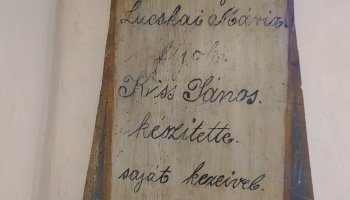 Lucskai Mária.
Kiss János.
készitette.
saját kezeivel.